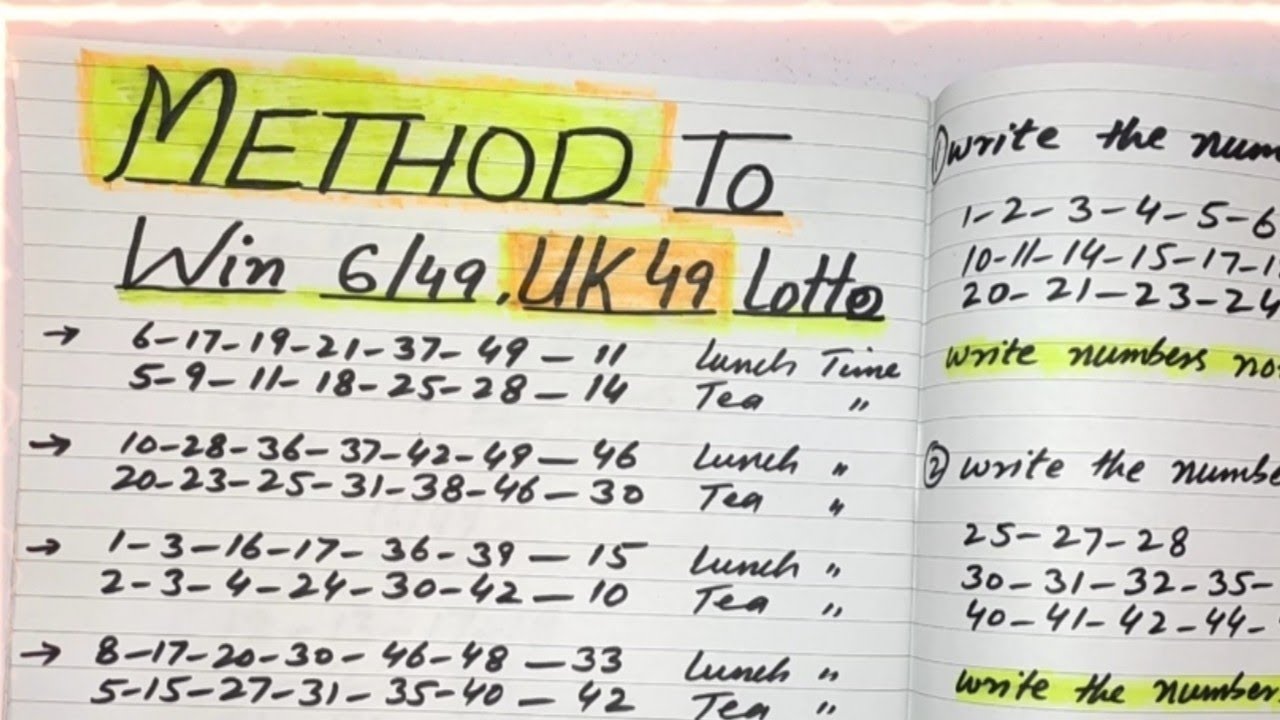 METHOD To
Win 6/49, UK 49 Lotto
→ 6-17-19-21-37-49-11 Lunch Time
5-9-11-18-25-28-14 Tea "
→ 10-28-36-37-42-49-46 Lunch "
20-23-25-31-38-46-30 Tea "
→ 1-3-16-17-36-39-15 Lunch "
2-3-4-24-30-42-10 Tea "
→ 8-17-20-30-46-48-33 Lunch "
5-15-27-31-35-40-42 Tea "
① write the num
1-2-3-4-5-6
10-11-14-15-17-1
20-21-23-24
write numbers no
② write the numbe
25-27-28
30-31-32-35-
40-41-42-44-
write the number